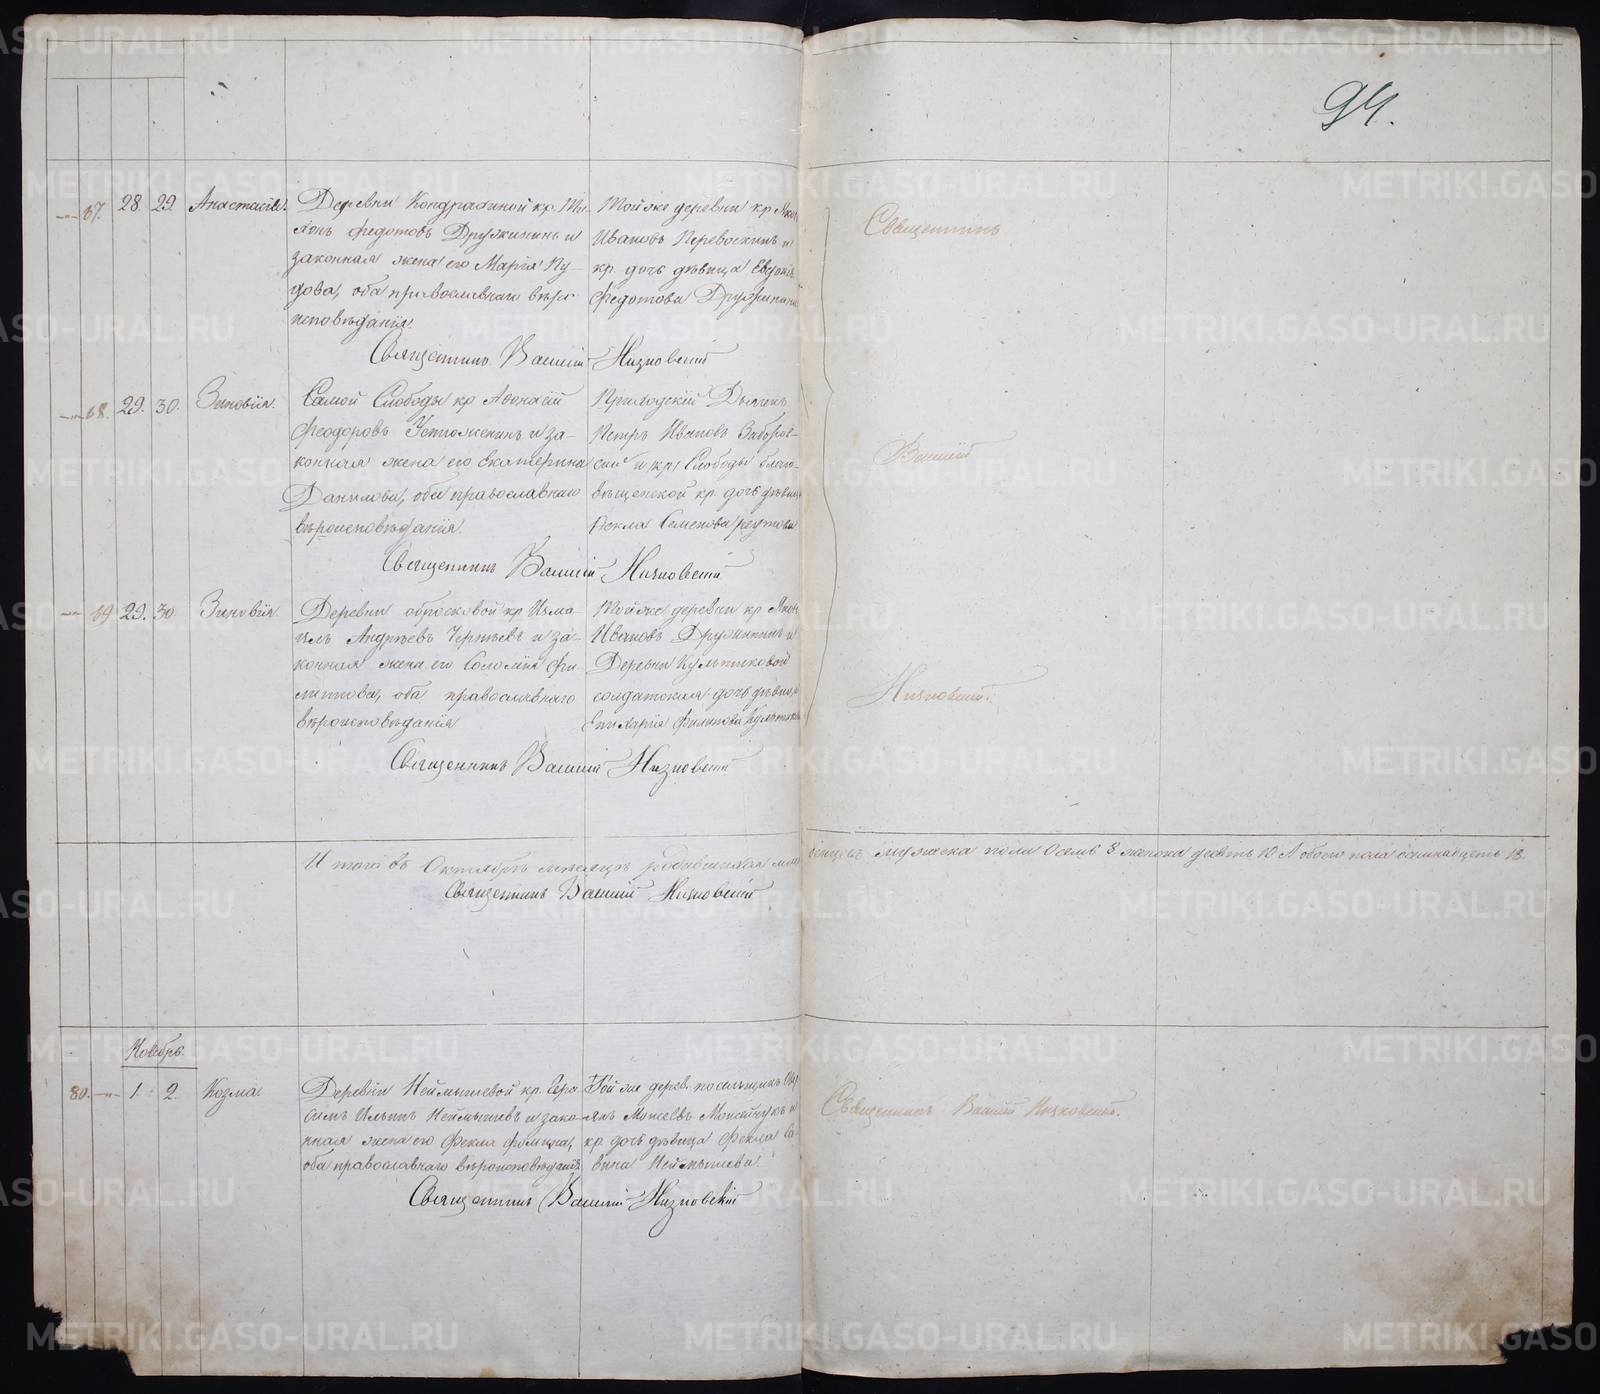 94.
67. 28. 29. Анастасія.
Деревни Кондрахиной кр. Ти-
фонъ Федотовъ Дружининъ и
законная жена его Марія Пу-
дова, оба православнаго вѣро-
исповѣданія.
Тойже деревни кр.
Ивановъ Перевоскинъ и
кр. дочь дѣвица Евдокія
Федотова Дружинина
Священникъ Василій Низковскій
68. 29. 30. Зиновія.
Самой Слободы кр Афонасій
Феодоровъ Устюженинъ и за-
конная жена его Екатерина
Данилова, оба православнаго
вѣроисповѣданія.
Приходскій Дьячекъ
Петръ Ивановъ Заборов-
скій и кр Слободы Благо-
вѣщенской кр. дочь дѣвица
Фекла Семенова
Священникъ Василій Низковскій
69 29. 30. Зиновія.
Деревни обросковой кр. Изма-
илъ Андреевъ и за-
конная жена его Соломія Фи-
липпова, оба православнаго
вѣроисповѣданія
Тойже деревни кр. Яковъ
Ивановъ Дружининъ и
Деревни Култыковой
солдатская дочь дѣвица
Епихарія Филипова
Священникъ Василій Низковскій
Священникъ
Василій
Низковскій.
Итого въ Октябрѣ мѣсяцѣ родившихся мла
денцевъ мужеска пола Осемь 8 женска десять 10 А обоего пола осмнадцеть 18.
Священникъ Василій Низковскій
Ноябрь.
80. 1. 2. Козма
Деревни Неймышевой кр. Гера-
симъ Ильинъ Неймышевъ и зако-
нная жена его Фекла Фомина,
оба православнаго вѣроисповѣданія
Той же дерев. посельщикъ
Моисеевъ и
кр. дочь дѣвица Фекла Са-
вина Неймышева.
Священникъ Василій Низковскій
Священникъ Василій Низковскій.
METRIKI.GASO-URAL.RU